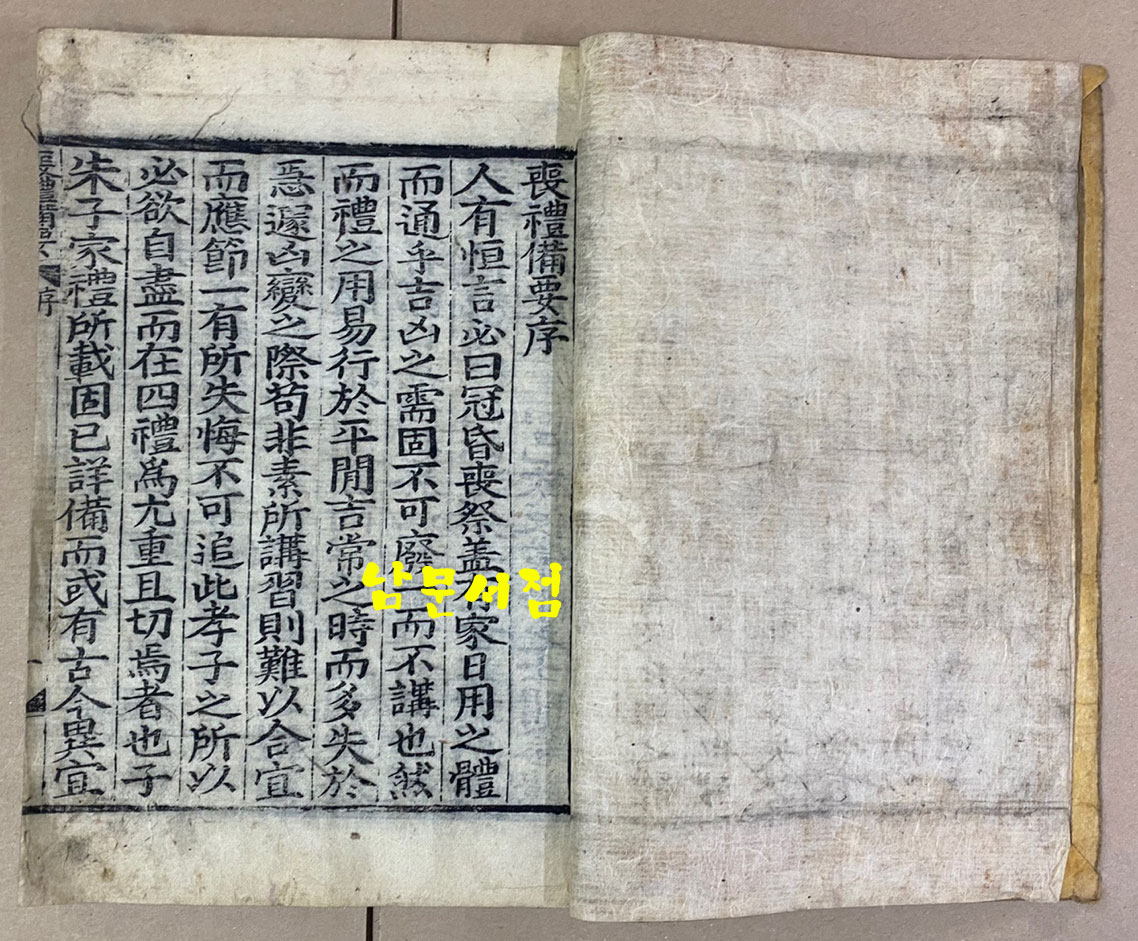 喪禮備要序
人有恒言必曰冠昏喪祭盖有家日用之體
而通乎吉凶之需固不可廢一而不講也然
而禮之用易行於平閒吉常之時而多失於
急遽凶變之際苟非素所講習則難以合宜
而應節一有所失悔不可追此孝子之所以
必欲自盡而在四禮爲尤重且切焉者也子
朱子家禮所載固已詳備而或有古今異宜
喪禮備要 序 一
남문서점